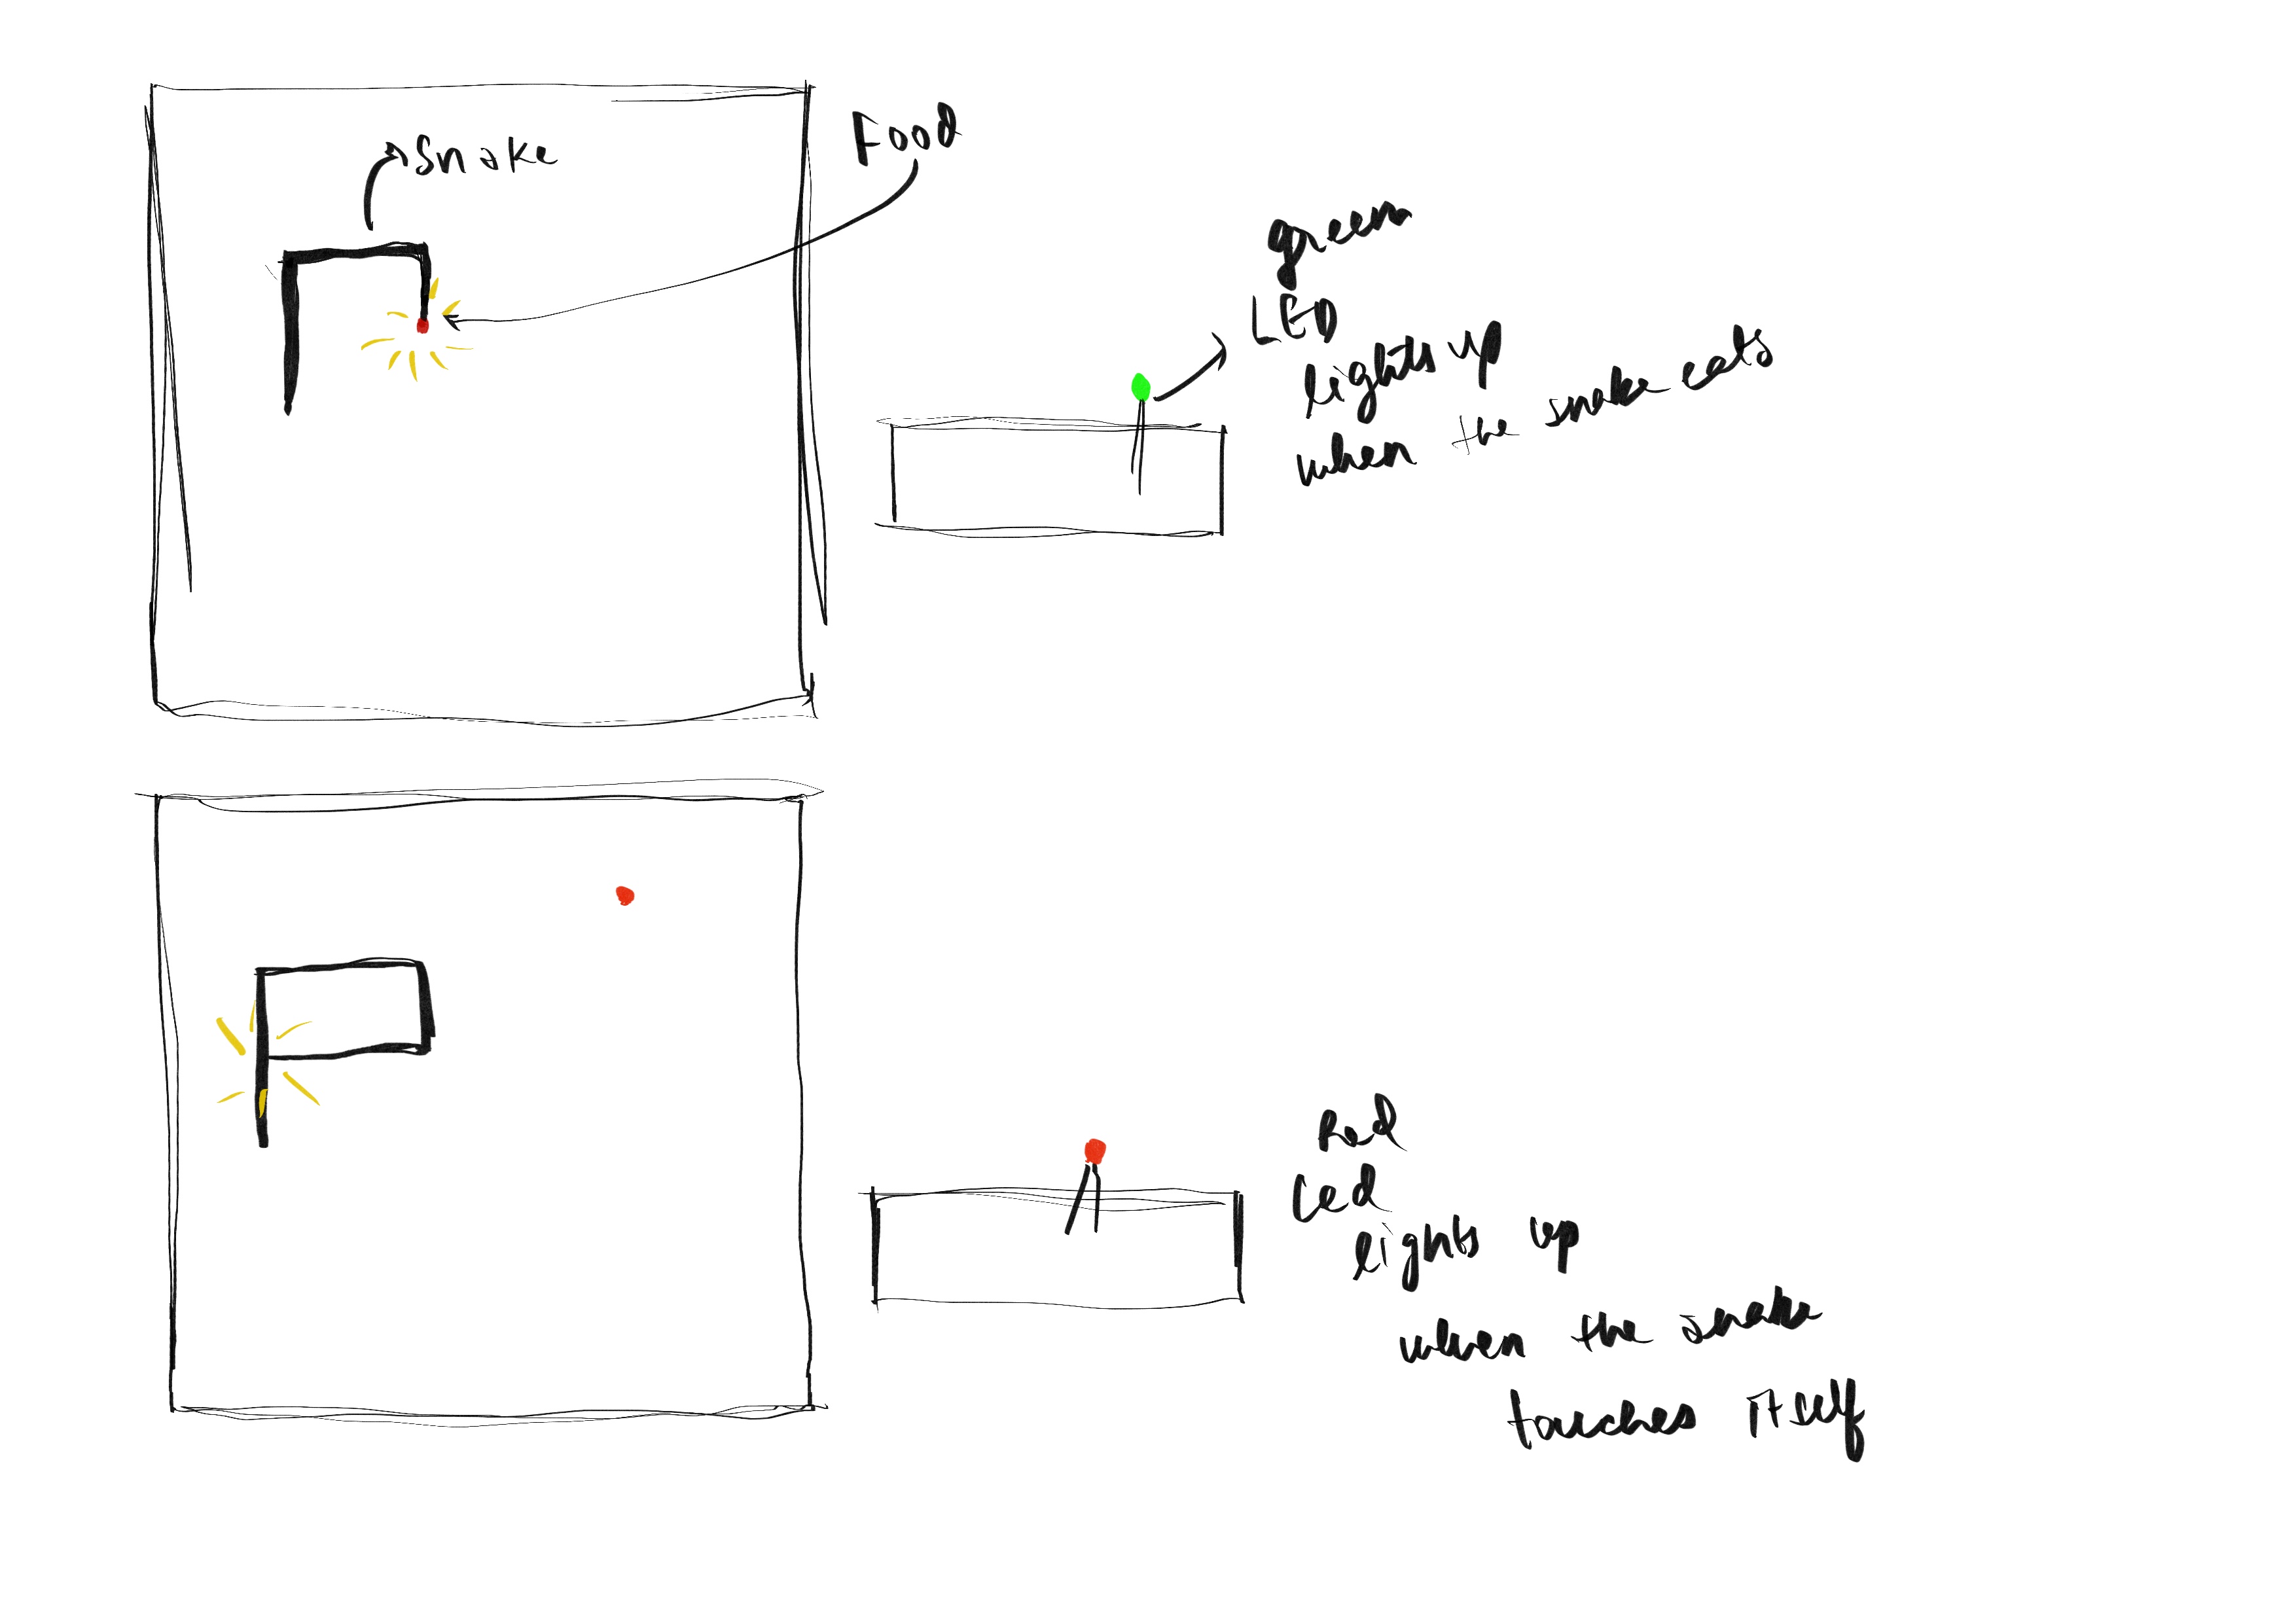 Snake
Food
green
LED
lights up
when the snake eats
Red
Led
lights up
when the snake
touches itself